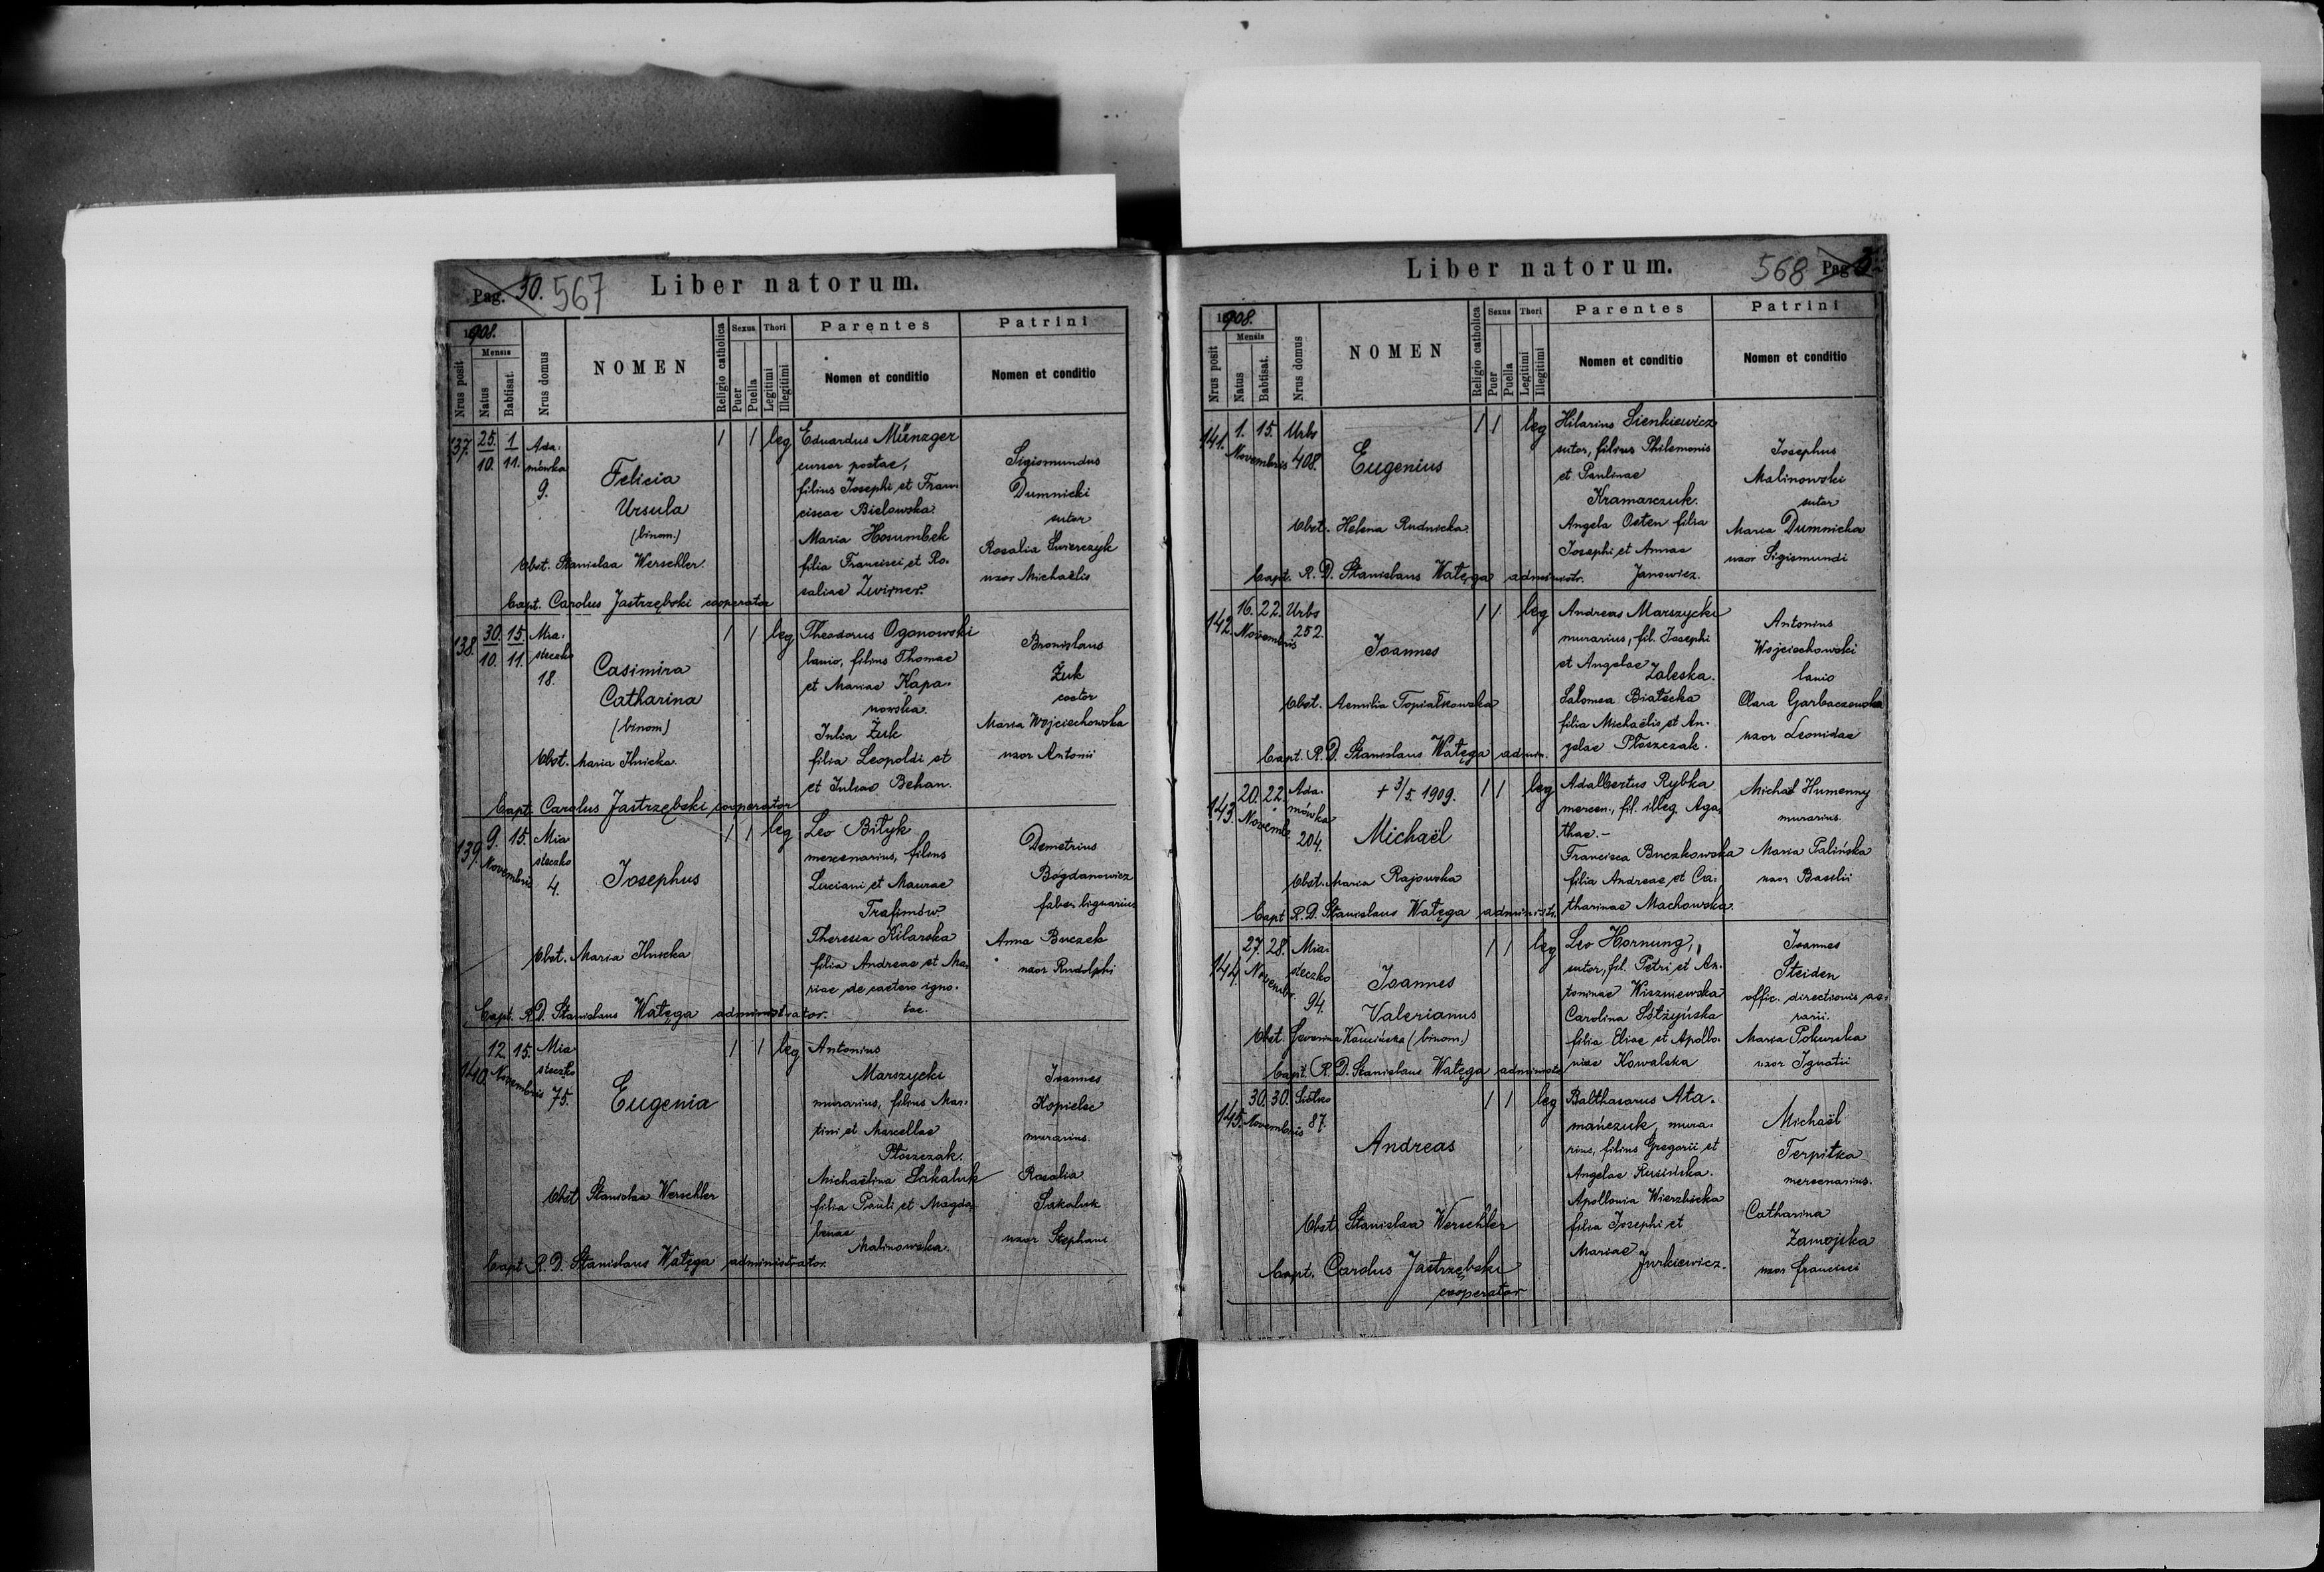 Pag. 30. 567 Liber natorum.
1908.
Nrus posit
Mensis
Natus
Babtisat.
Nrus domus
NOMEN
Religio catholica
Sexus
Puer
Puella
Thori
Legitimi
Illegitimi
Parentes
Nomen et conditio
Patrini
Nomen et conditio
137. 25. 1 Ada-
10. 11. mówka
9.
Felicia
Ursula
(binom.)
Obst. Stanislaa Werschler.
Bapt. Carolus Jastrzębski cooperator
1 1 leg
Eduardus Münzger
cursor postae,
filius Josephi et Fran-
ciscae Bielawska.
Maria Hosumbek
filia Francisci et Ro-
saliae Zwirner.
Sigismundus
Dumnicki
sutor
Rosalia Świerczyk
uxor Michaëlis
138. 30. 15. Mia-
10. 11. steczko
18.
Casimira
Catharina
(binom)
Obst. Maria Ilnicka.
Bapt. Carolus Jastrzębski cooperator
1 1 leg
Theodorus Ogonowski
lanio, filius Thomae
et Mariae Kapa-
nowska.
Julia Żuk
filia Leopoldi et
et Juliae Behan.
Bronislaus
Żuk
coctor
Maria Wojciechowska
uxor Antonii
139. 9. 15. Mia
Novembris steczko
4.
Josephus
Obst. Maria Ilnicka
Bapt. R.D. Stanislaus Wałęga administrator.
1 1 leg
Leo Biłyk
mercenarius, filius
Luciani et Maurae
Trafimów.
Theresia Kilarska
filia Andreae et Ma-
riae de caetero igno-
tae.
Demetrius
Bogdanowicz
faber lignarius
Anna Buczek
uxor Rudolphi
140. 12. 15. Mia
Novembris steczko
75.
Eugenia
Obst Stanislaa Werschler
Bapt. R.D. Stanislaus Wałęga administrator.
1 1 leg
Antonius
Marszycki
murarius, filius Mar-
tini et Marcellae
Płoszczak.
Michaëlina Sakaluk
filia Pauli et Magda-
lenae
Malinowska.
Joannes
Kopielec
murarius.
Rosalia
Sakaluk
uxor Stephani
Liber natorum. 568 Pag
1908.
Nrus posit
Mensis
Natus
Babtisat.
Nrus domus
NOMEN
Religio catholica
Sexus
Puer
Puella
Thori
Legitimi
Illegitimi
Parentes
Nomen et conditio
Patrini
Nomen et conditio
141. 1. 15. Urbs
Novembris 408.
Eugenius
Obst. Helena Rudnicka.
Bapt. R.D. Stanislaus Wałęga administr.
1 1 leg
Hilarius Sienkiewicz
sutor, filius Philemonis
et Paulinae
Kramarczuk.
Angela Osten filia
Josephi et Annae
Janowicz.
Josephus
Malinowski
sutor
Maria Dumnicka
uxor Sigismundi
142. 16. 22. Urbs
Novembris 252.
Joannes
Obst. Aemilia Topiałkowska
Bapt. R.D. Stanislaus Wałęga admin.
1 1 leg
Andreas Marszycki
murarius, fil. Josephi
et Angelae Zaleska.
Salomea Białecka
filia Michaëlis et An-
gelae Płoszczak.
Antonius
Wojciechowski
lanio
Clara Garbaczewska
uxor Leonidae
143. 20. 22. Ada-
Novemb. mówka
204.
+ 3/5. 1909.
Michaël
Obst. Maria Rajowska
Bapt R.D. Stanislaus Wałęga administr.
1 1 leg
Adalbertus Rybka
mercen., fil. illeg. Aga-
thae.-
Francisca Buczkowska
filia Andreae et Ca-
tharinae Machowska.
Michaël Humenny
murarius.
Maria Palińska
uxor Basilii
144. 27. 28. Mia-
Novembr. steczko
94.
Joannes
Valerianus
Obst. Severina Kamińska (binom.)
Bapt. R.D. Stanislaus Wałęga administr.
1 1 leg
Leo Hornung,
sutor, fil. Petri et An-
toninae Wiszniewska
Carolina Sstżyńska
filia Eliae et Apollo-
niae Kowalska
Joannes
Steiden
offic. directionis ae-
rarii.
Maria Pokurska
uxor Ignatii
145. 30. 30. Siółko
Novembris 87.
Andreas
Obst. Stanislaa Werschler
Bapt. Carolus Jastrzębski
cooperator
1 1 leg
Balthasarus Ata-
mańczuk, mura-
rius, filius Gregorii et
Angelae Rusińska.
Apollonia Wierzbicka
filia Josephi et
Mariae
Jurkiewicz.
Michaël
Terpitka
mercenarius.
Catharina
Zamojska
uxor Francisci